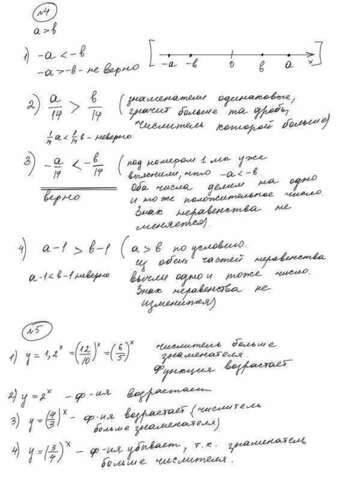 №4
a>b
1) -a < -b
-a > -b - не верно
-a -b 0 b a x
2) a/14 > b/14 (знаменатели одинаковые,
значит больше та дробь,
числитель которой больше)
1/14 a < 1/14 b - неверно
3) -a/14 < -b/14 (под номером 1 мы уже
выяснили, что -a < -b
Оба числа делим на одно
и тоже положительное число.
Знак неравенства не
меняется).
верно
4) a-1 > b-1 (a>b по условию.
из обеих частей неравенства
вычли одно и тоже число.
Знак неравенства не
изменится)
a-1 < b-1 неверно
№5
1) y=1,2^x =(12/10)^x =(6/5)^x числитель больше
знаменателя
Функция возрастает
2) y=2^x - ф-ия возрастает
3) y=(4/3)^x - ф-ия возрастает (числитель
больше знаменателя)
4) y=(3/4)^x - ф-ия убывает, т.к. знаменатель
больше числителя.